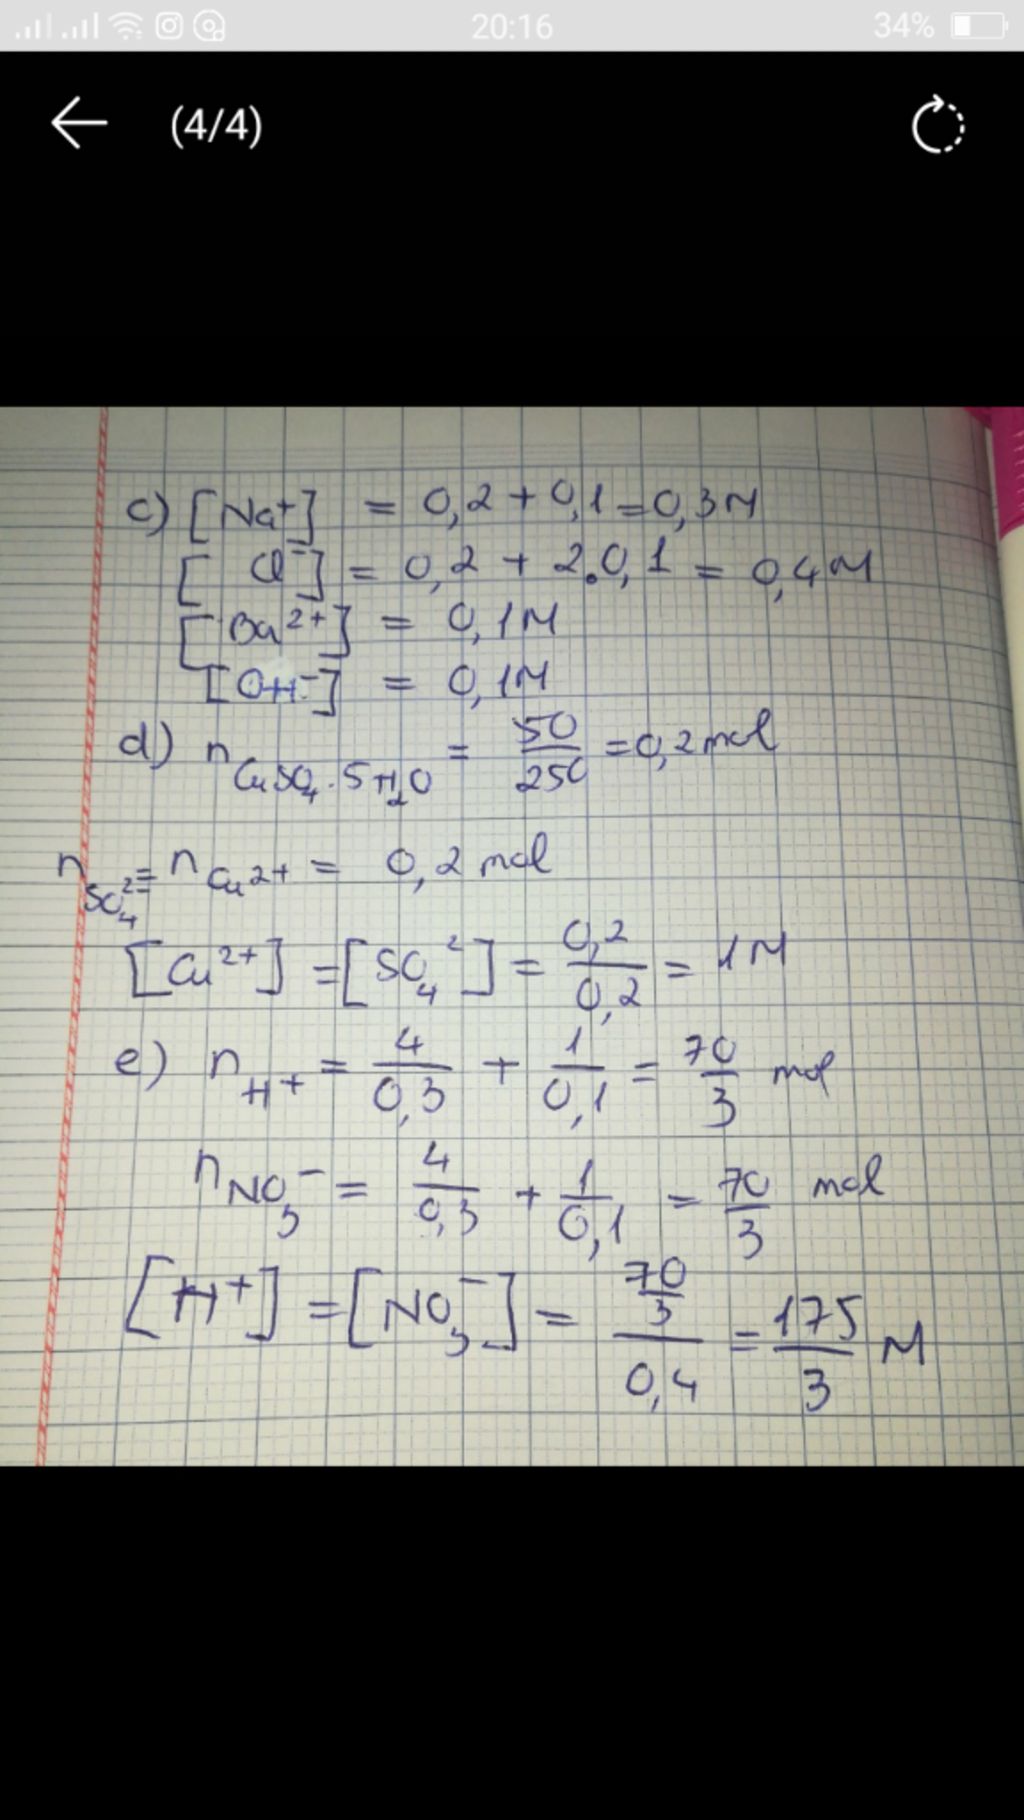 20:16
34%
(4/4)
c) [Na⁺] = 0,2 + 0,1 = 0,3M
[Cl⁻] = 0,2 + 2.0,1 = 0,4M
[Ba²⁺] = 0,1M
[OH⁻] = 0,1M
d) n CuSO₄.5H₂O = 50/250 = 0,2 mol
n SO₄²⁻ = n Cu²⁺ = 0,2 mol
[Cu²⁺] = [SO₄²] = 0,2/0,2 = 1M
e) n H⁺ = 4/0,3 + 1/0,1 = 70/3 mol
n NO₃⁻ = 4/0,3 + 1/0,1 = 70/3 mol
[H⁺] = [NO₃⁻] = (70/3)/0,4 = 175/3 M